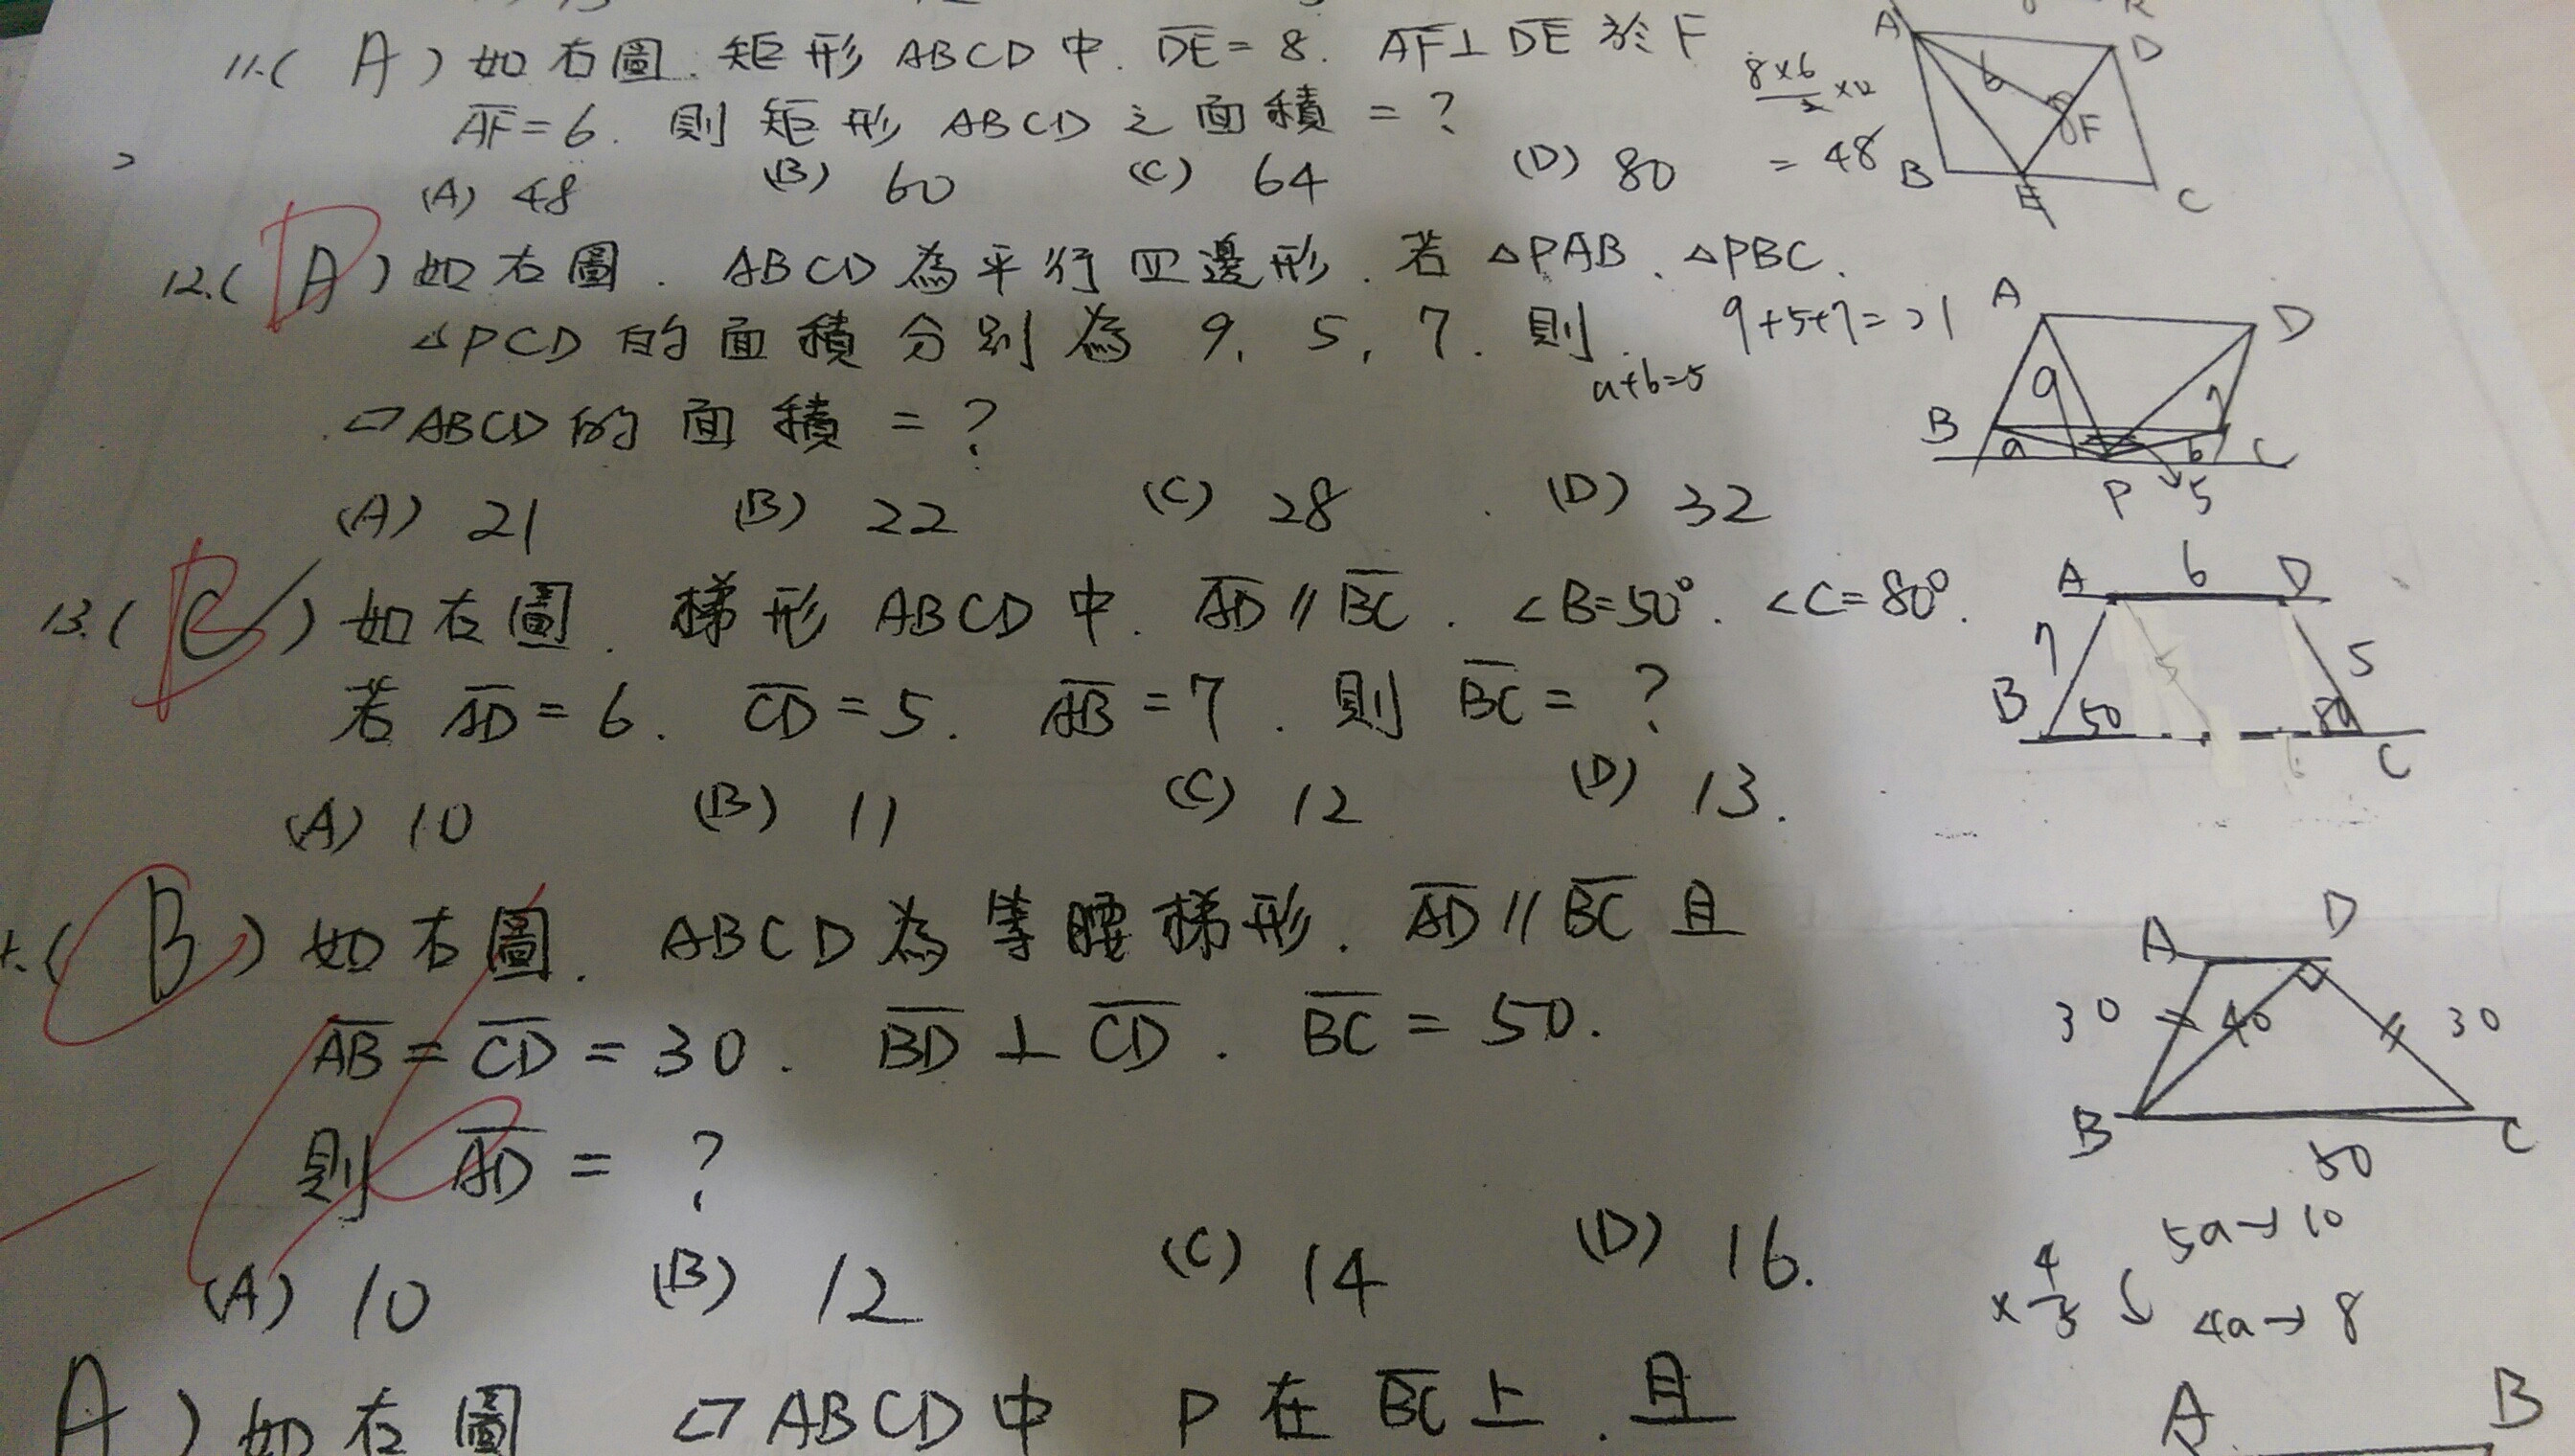 11.( A ) 如右圖. 矩形 ABCD 中. DE = 8. AF⊥DE 於 F
AF = 6. 則矩形 ABCD 之面積 = ?
(A) 48 (B) 60 (C) 64 (D) 80
8×6/2 ×2
= 48
A D 6 F B E C
12.( A ) 如右圖. ABCD 為平行四邊形. 若 △PAB、△PBC、
△PCD 的面積分別為 9, 5, 7. 則
▱ABCD 的面積 = ?
(A) 21 (B) 22 (C) 28 (D) 32
D
9+5+7=21
a+b=5
A D 9 7 B a b C P 5
13.( C ) 如右圖. 梯形 ABCD 中. AD // BC. ∠B=50°. ∠C=80°.
若 AD = 6. CD = 5. AB = 7. 則 BC = ?
(A) 10 (B) 11 (C) 12 (D) 13.
B
A 6 D 7 5 B 50 80 C
( B ) 如右圖. ABCD 為等腰梯形. AD // BC 且
AB = CD = 30. BD ⊥ CD. BC = 50.
則 AD = ?
(A) 10 (B) 12 (C) 14 (D) 16.
A D 30 40 30 B C 50
5a→10
×4/5
4a→8
A ) 如右圖 ▱ABCD 中 P 在 BC 上. 且
A B